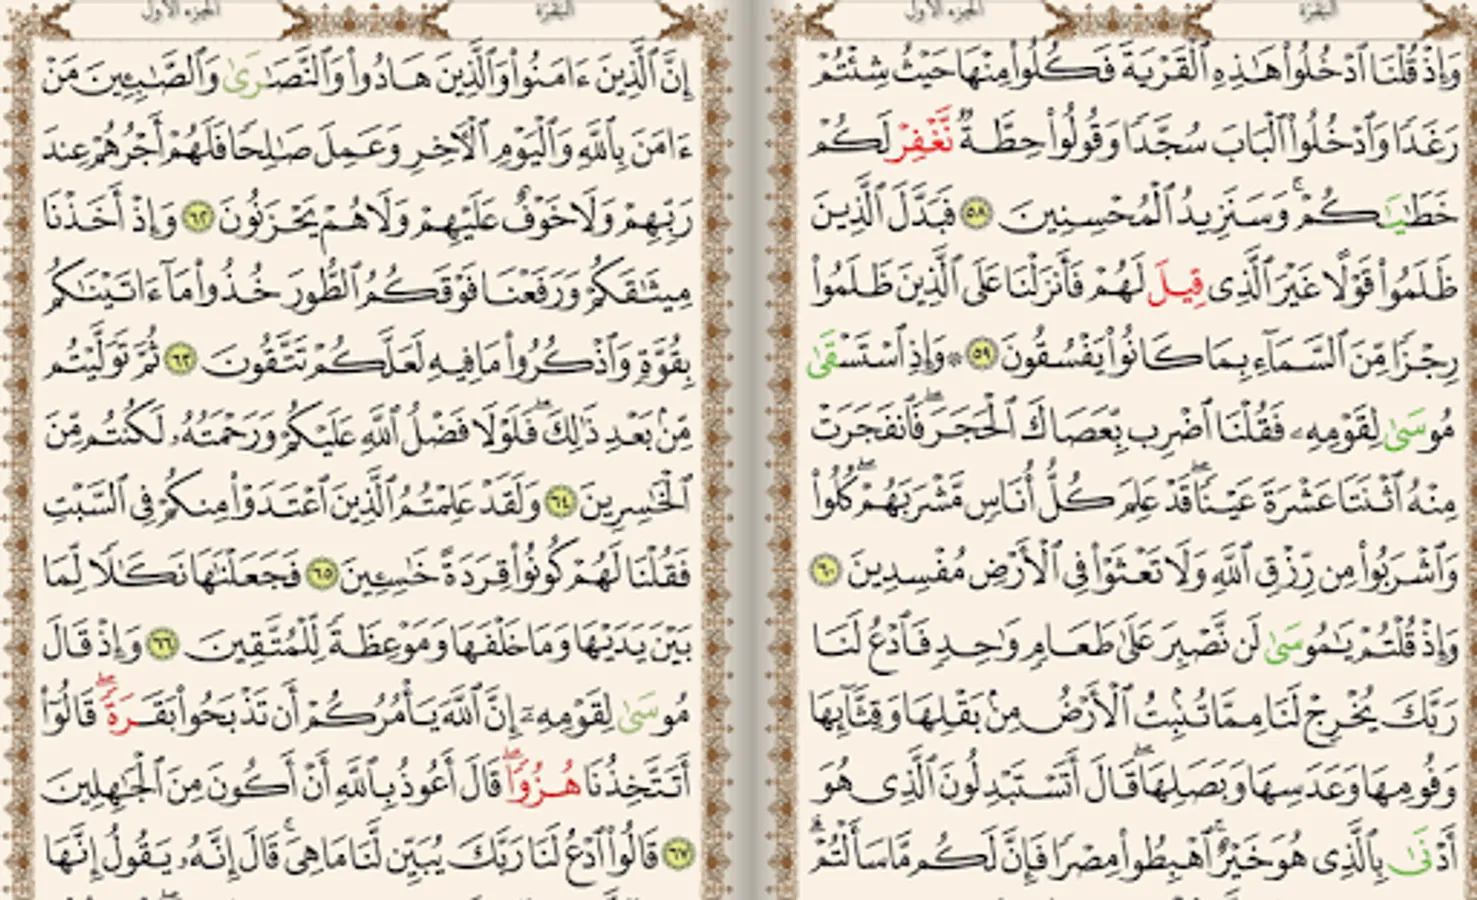 الجزء الأول
البقرة
وَإِذْ قُلْنَا ٱدْخُلُوا۟ هَـٰذِهِ ٱلْقَرْيَةَ فَكُلُوا۟ مِنْهَا حَيْثُ شِئْتُمْ
رَغَدًا وَٱدْخُلُوا۟ ٱلْبَابَ سُجَّدًا وَقُولُوا۟ حِطَّةٌ نَّغْفِرْ لَكُمْ
خَطَـٰيَـٰكُمْ ۚ وَسَنَزِيدُ ٱلْمُحْسِنِينَ ٥٨ فَبَدَّلَ ٱلَّذِينَ
ظَلَمُوا۟ قَوْلًا غَيْرَ ٱلَّذِى قِيلَ لَهُمْ فَأَنزَلْنَا عَلَى ٱلَّذِينَ ظَلَمُوا۟
رِجْزًا مِّنَ ٱلسَّمَآءِ بِمَا كَانُوا۟ يَفْسُقُونَ ٥٩ ۞ وَإِذِ ٱسْتَسْقَىٰ
مُوسَىٰ لِقَوْمِهِۦ فَقُلْنَا ٱضْرِب بِّعَصَاكَ ٱلْحَجَرَ ۖ فَٱنفَجَرَتْ
مِنْهُ ٱثْنَتَا عَشْرَةَ عَيْنًا ۖ قَدْ عَلِمَ كُلُّ أُنَاسٍ مَّشْرَبَهُمْ ۖ كُلُوا۟
وَٱشْرَبُوا۟ مِن رِّزْقِ ٱللَّهِ وَلَا تَعْثَوْا۟ فِى ٱلْأَرْضِ مُفْسِدِينَ ٦٠
وَإِذْ قُلْتُمْ يَـٰمُوسَىٰ لَن نَّصْبِرَ عَلَىٰ طَعَامٍ وَٰحِدٍ فَٱدْعُ لَنَا
رَبَّكَ يُخْرِجْ لَنَا مِمَّا تُنۢبِتُ ٱلْأَرْضُ مِنۢ بَقْلِهَا وَقِثَّآئِهَا
وَفُومِهَا وَعَدَسِهَا وَبَصَلِهَا ۖ قَالَ أَتَسْتَبْدِلُونَ ٱلَّذِى هُوَ
أَدْنَىٰ بِٱلَّذِى هُوَ خَيْرٌ ۚ ٱهْبِطُوا۟ مِصْرًا فَإِنَّ لَكُم مَّا سَأَلْتُمْ ۗ
الجزء الأول
البقرة
إِنَّ ٱلَّذِينَ ءَامَنُوا۟ وَٱلَّذِينَ هَادُوا۟ وَٱلنَّصَـٰرَىٰ وَٱلصَّـٰبِـِٔينَ مَنْ
ءَامَنَ بِٱللَّهِ وَٱلْيَوْمِ ٱلْـَٔاخِرِ وَعَمِلَ صَـٰلِحًا فَلَهُمْ أَجْرُهُمْ عِندَ
رَبِّهِمْ وَلَا خَوْفٌ عَلَيْهِمْ وَلَا هُمْ يَحْزَنُونَ ٦٢ وَإِذْ أَخَذْنَا
مِيثَـٰقَكُمْ وَرَفَعْنَا فَوْقَكُمُ ٱلطُّورَ خُذُوا۟ مَآ ءَاتَيْنَـٰكُم
بِقُوَّةٍ وَٱذْكُرُوا۟ مَا فِيهِ لَعَلَّكُمْ تَتَّقُونَ ٦٣ ثُمَّ تَوَلَّيْتُم
مِّنۢ بَعْدِ ذَٰلِكَ ۖ فَلَوْلَا فَضْلُ ٱللَّهِ عَلَيْكُمْ وَرَحْمَتُهُۥ لَكُنتُم مِّنَ
ٱلْخَـٰسِرِينَ ٦٤ وَلَقَدْ عَلِمْتُمُ ٱلَّذِينَ ٱعْتَدَوْا۟ مِنكُمْ فِى ٱلسَّبْتِ
فَقُلْنَا لَهُمْ كُونُوا۟ قِرَدَةً خَـٰسِـِٔينَ ٦٥ فَجَعَلْنَـٰهَا نَكَـٰلًا لِّمَا
بَيْنَ يَدَيْهَا وَمَا خَلْفَهَا وَمَوْعِظَةً لِّلْمُتَّقِينَ ٦٦ وَإِذْ قَالَ
مُوسَىٰ لِقَوْمِهِۦٓ إِنَّ ٱللَّهَ يَأْمُرُكُمْ أَن تَذْبَحُوا۟ بَقَرَةً ۖ قَالُوٓا۟
أَتَتَّخِذُنَا هُزُوًا ۖ قَالَ أَعُوذُ بِٱللَّهِ أَنْ أَكُونَ مِنَ ٱلْجَـٰهِلِينَ
٦٧ قَالُوا۟ ٱدْعُ لَنَا رَبَّكَ يُبَيِّن لَّنَا مَا هِىَ ۚ قَالَ إِنَّهُۥ يَقُولُ إِنَّهَا